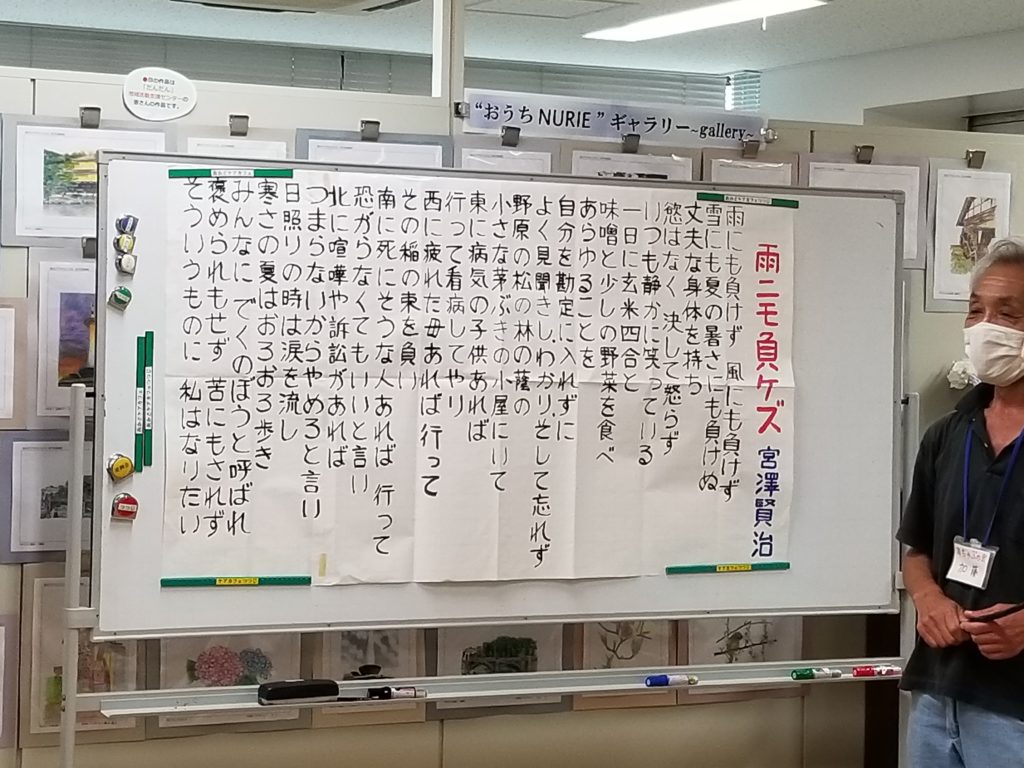 “おうち NURIE ” ギャラリー~gallery~
雨ニモ負ケズ 宮澤賢治
雨にも負けず 風にも負けず
雪にも夏の暑さにも負けぬ
丈夫な身体を持ち
慾はなく 決して怒らず
いつも静かに笑っている
一日に玄米四合と
味噌と少しの野菜を食べ
あらゆることを
自分を勘定に入れずに
よく見聞きし、わかり、そして忘れず
野原の松の林の蔭の
小さな茅ぶきの小屋にいて
東に病気の子供あれば
行って看病してやり
西に疲れた母あれば 行って
その稲の束を負い
南に死にそうな人あれば 行って
恐がらなくても いいと言い
北に喧嘩や訴訟があれば
つまらないからやめろと言い
日照りの時は涙を流し
寒さの夏はおろおろ歩き
みんなに でくのぼうと呼ばれ
褒められもせず 苦にもされず
そういうものに 私はなりたい
加藤